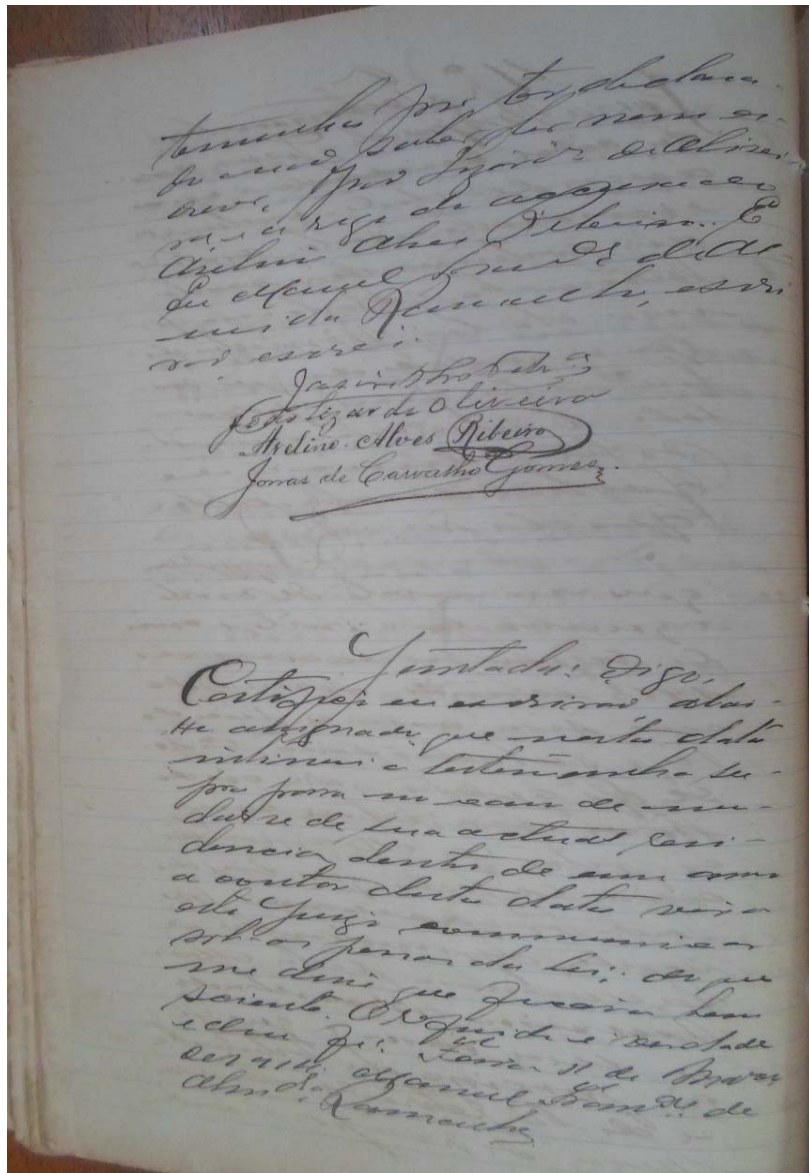 temunha por ter declara-
do não saber ler nem es-
crever, José Lizardo de Olivei-
ra e a rogo do accusado
Arlino Alves Ribeiro. E
Eu Manuel de Al-
meida Ramalho, escri-
vão escrevi.
José Lizardo Oliveira
Arlino Alves Ribeiro
Jonas de Carvalho Gomes.
Juntada: Digo,
Certifico eu escrivão, abai-
xo assignado, que nesta data
intimei a testemunha su-
pra para no caso de mu-
dar-se de sua actual resi-
dencia, dentro de um anno
a contar desta data, vir a
este Juizo communicar
sob as penas da lei; do que
me disse que ficava bem
sciente. O referido é verdade
e dou fé. de
Manuel de
Almda. Ramalho